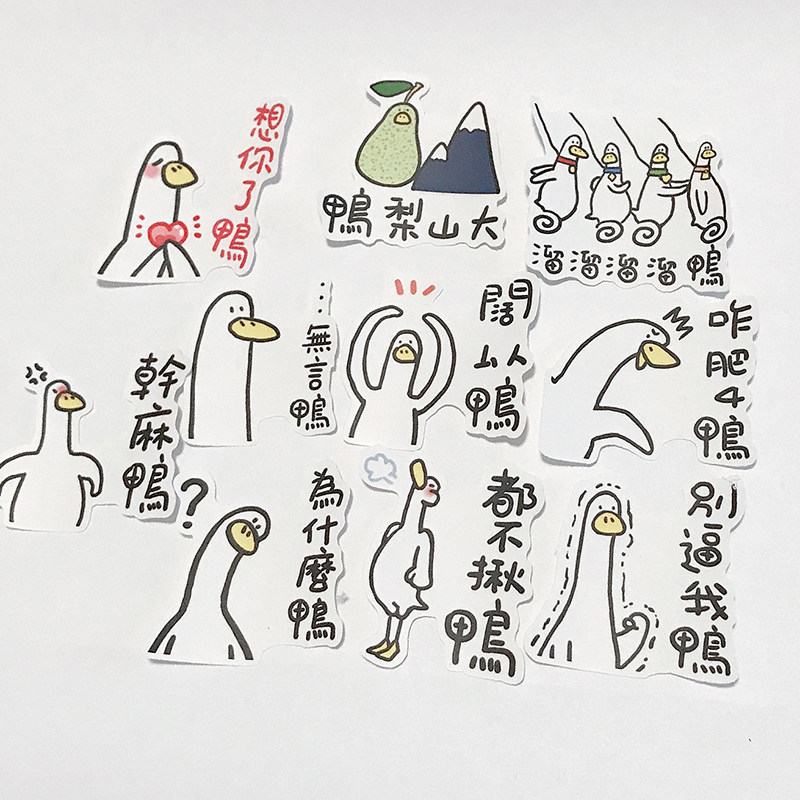 想你了鴨
鴨梨山大
溜溜溜溜鴨
幹麻鴨
…無言鴨
闊以鴨
咋肥4鴨
?
為什麼鴨
都不揪鴨
別逼我鴨